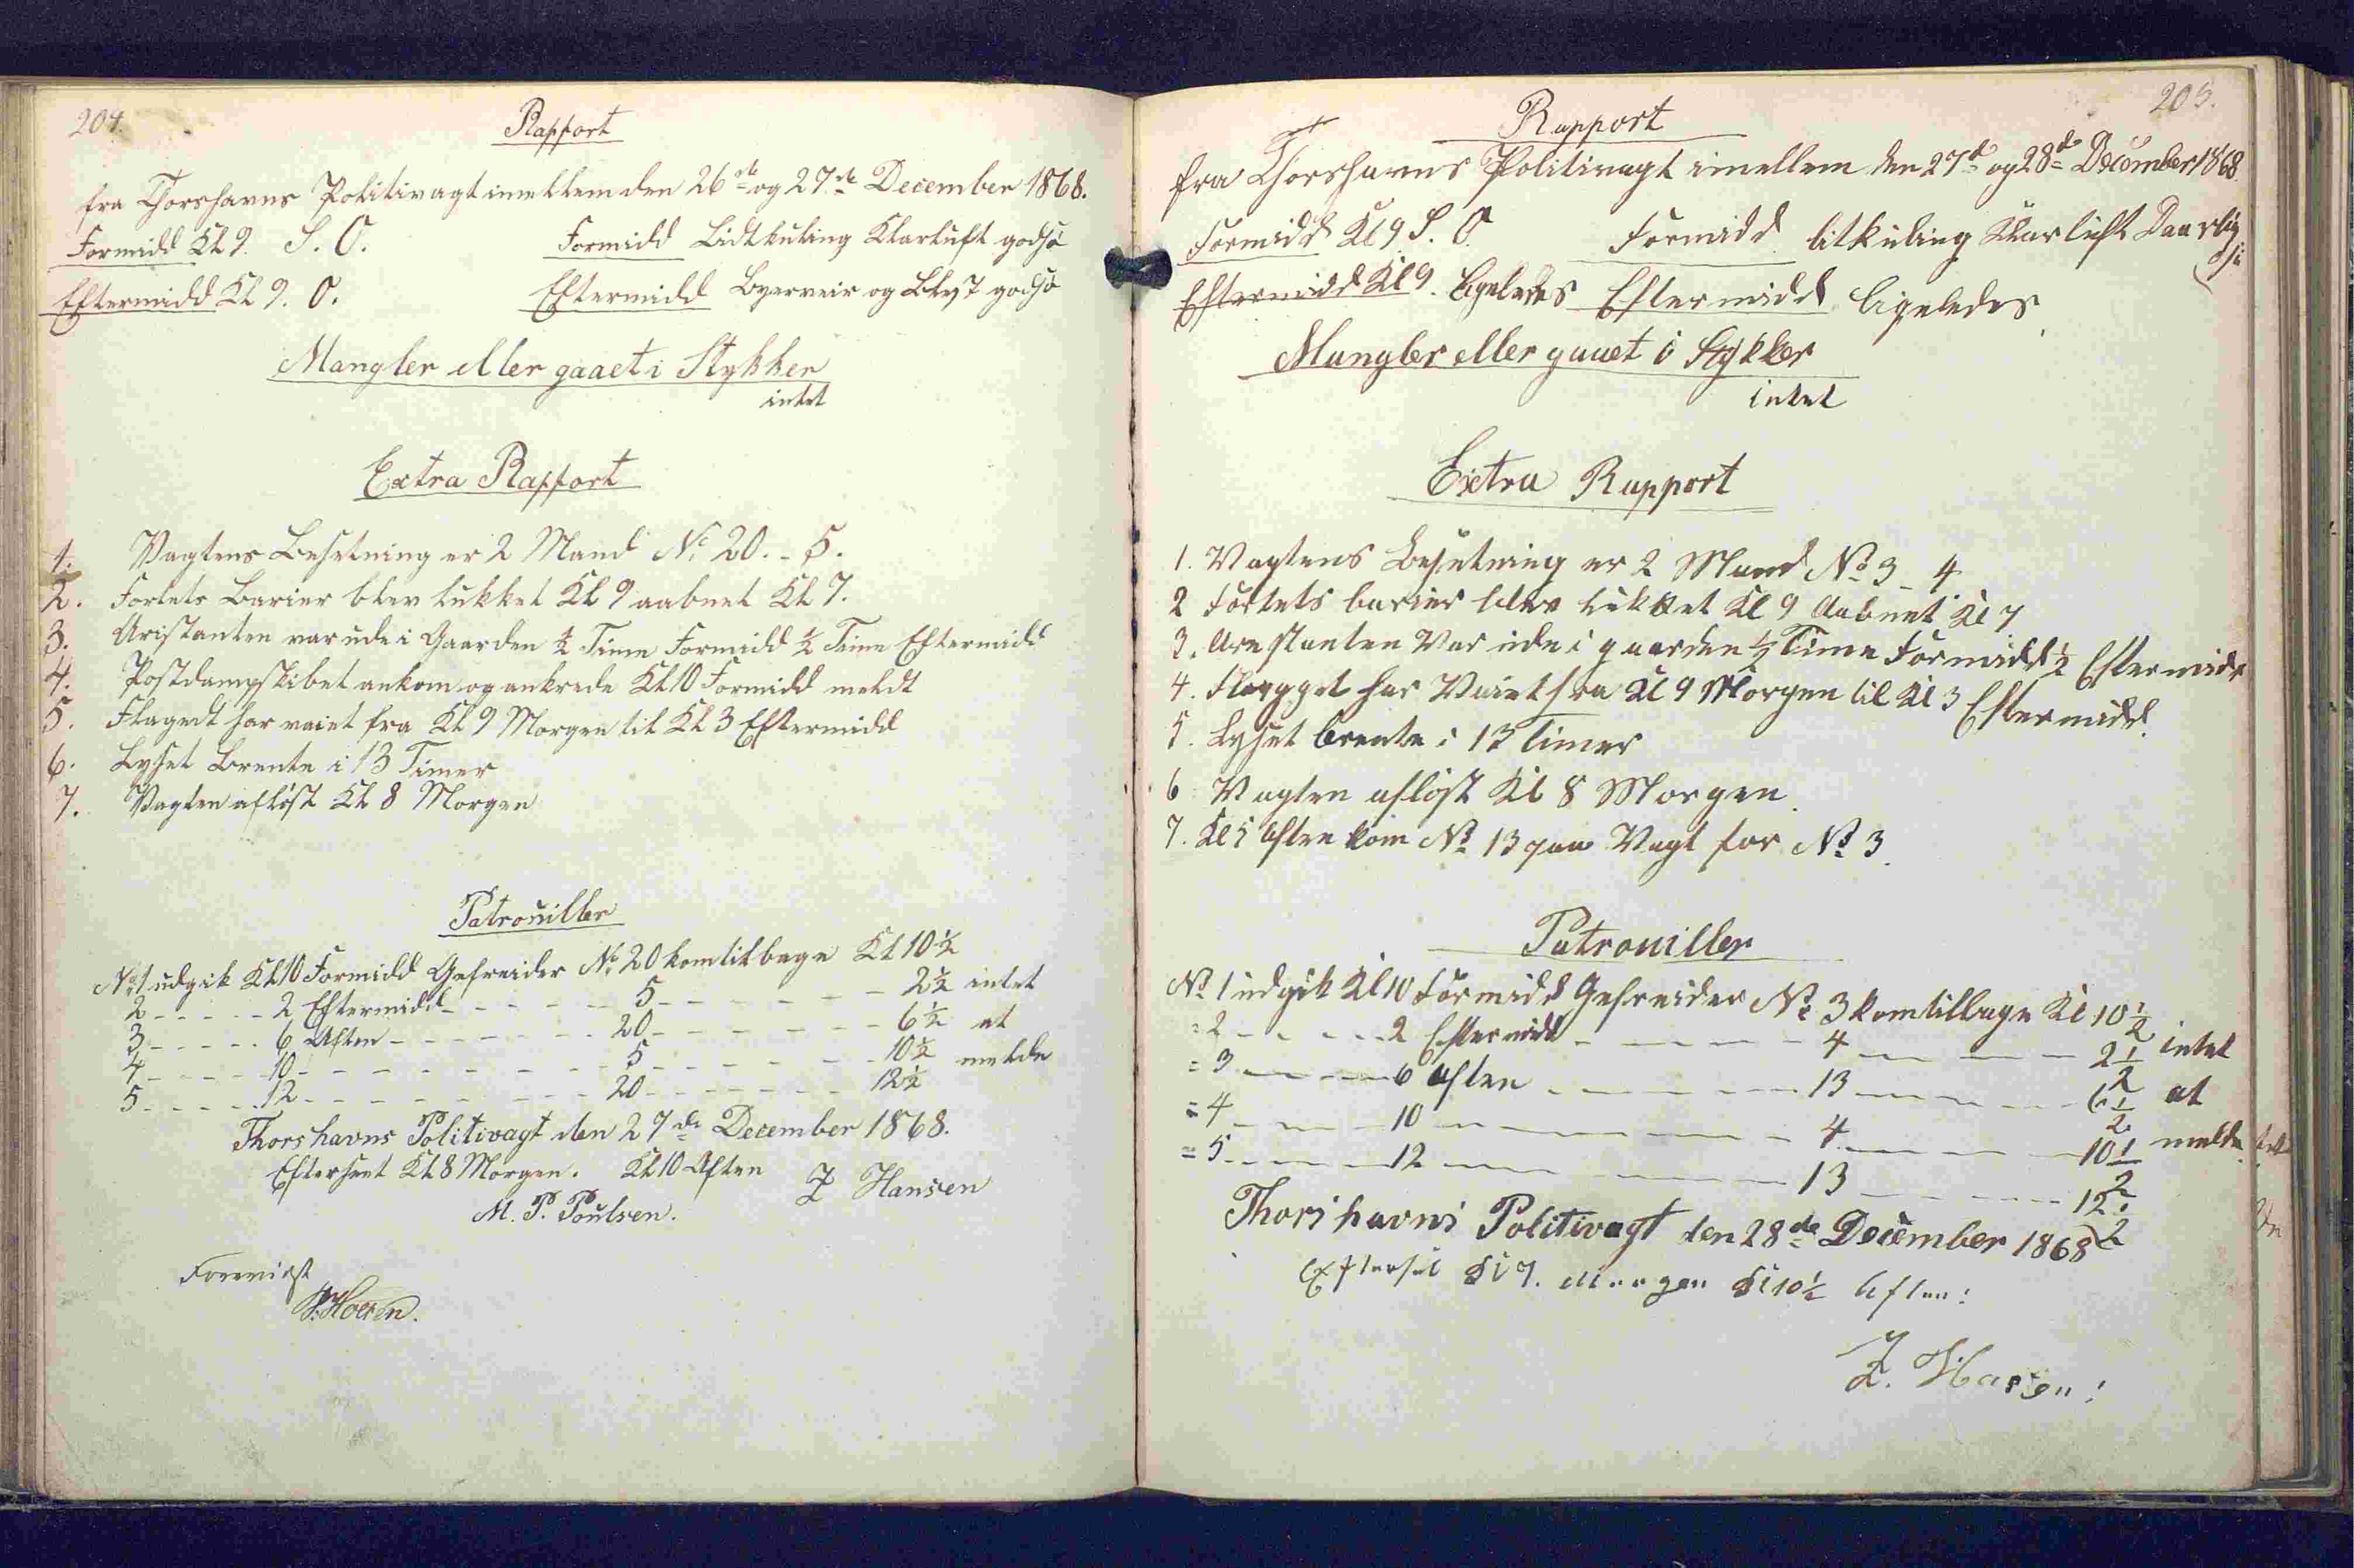 204.
Rapport
fra Thorshavns Politivagt imellem den 26de og 27de December 1868.
Formidd Kl 9. S. O. Formidd Lidt kuling Klarluft god Sø
Eftermidd Kl 9. O. Eftermidd Byerveir og Blæst god Sø
Mangler eller gaaet i Stykker
intet
Extra Rapport
1. Vagtens Besetning er 2 Mand No 20. - 5.
2. Fortets Barier blev lukket Kl 9 aabnet Kl 7.
3. Aristanten var ude i Gaarden ½ Time Formidd ½ Time Eftermidd
4. Postdampskibet ankom og ankrede Kl 10 Formidd meldt
5. Flagedt har vaiet fra Kl 9 Morgen til Kl 3 Eftermidd
6. Lyset Brente i 13 Timer
7. Vagten afløst Kl 8 Morgen
Patrouiller
No 1 udgik Kl 10 Formidd Gefreider No 20 kom tilbage Kl 10½
2 - - - - - 2 Eftermidd - - - - - 5 - - - - - - 2½ intet
3 - - - - - 6 Aften - - - - - - 20 - - - - - - 6½ at
4 - - - - - 10 - - - - - - - - 5 - - - - - - 10½ melde
5 - - - - - 12 - - - - - - - - 20 - - - - - - 12½
Thorshavns Politivagt den 27de December 1868.
Efterseet Kl 8 Morgen. Kl 10 Aften J Hansen
M. P. Poulsen.
Forevist
205.
Rapport
fra Thorshavns Politivagt imellem den 27de og 28de December 1868
Formidd Kl 9 S. O. Formidd litkuling Klar luft Daarlig
Sø
Eftermidd Kl 9. ligeledes Eftermidd ligeledes
Mangler eller gaaet i Stykker
intet
Extra Rapport
1. Vagtens Besetning er 2 Mand No 3 - 4
2 Fortets barier blev lukket Kl 9 Aabnet Kl 7
3. Arestanten Var ude i gaarden ½ Time Formidd ½ Eftermidd
4. Flagget har Vaiet fra Kl 9 Morgen til Kl 3 Eftermidd.
5. Lyset brente i 13 Timer
6 Vagten afløst Kl 8 Morgen.
7. Kl 5 Aften kom No 13 paa Vagt for No 3.
Patrouiller
No 1 udgik Kl 10 Formidd Gefreider No 3 kom tilbage Kl 10½
= 2 - - - - - 2 Eftermidd - - - - - 4 - - - - - 2½ intet
= 3 - - - - - 6 Aften - - - - - - 13 - - - - - 6½ at
= 4 - - - - - 10 - - - - - - - 4 - - - - - 10½ melde
= 5 - - - - - 12 - - - - - - - 13 - - - - - 12½
Thorshavns Politivagt den 28de December 1868
Efterset Kl 7. Morgen Kl 10½ Aften:
J. Hansen: